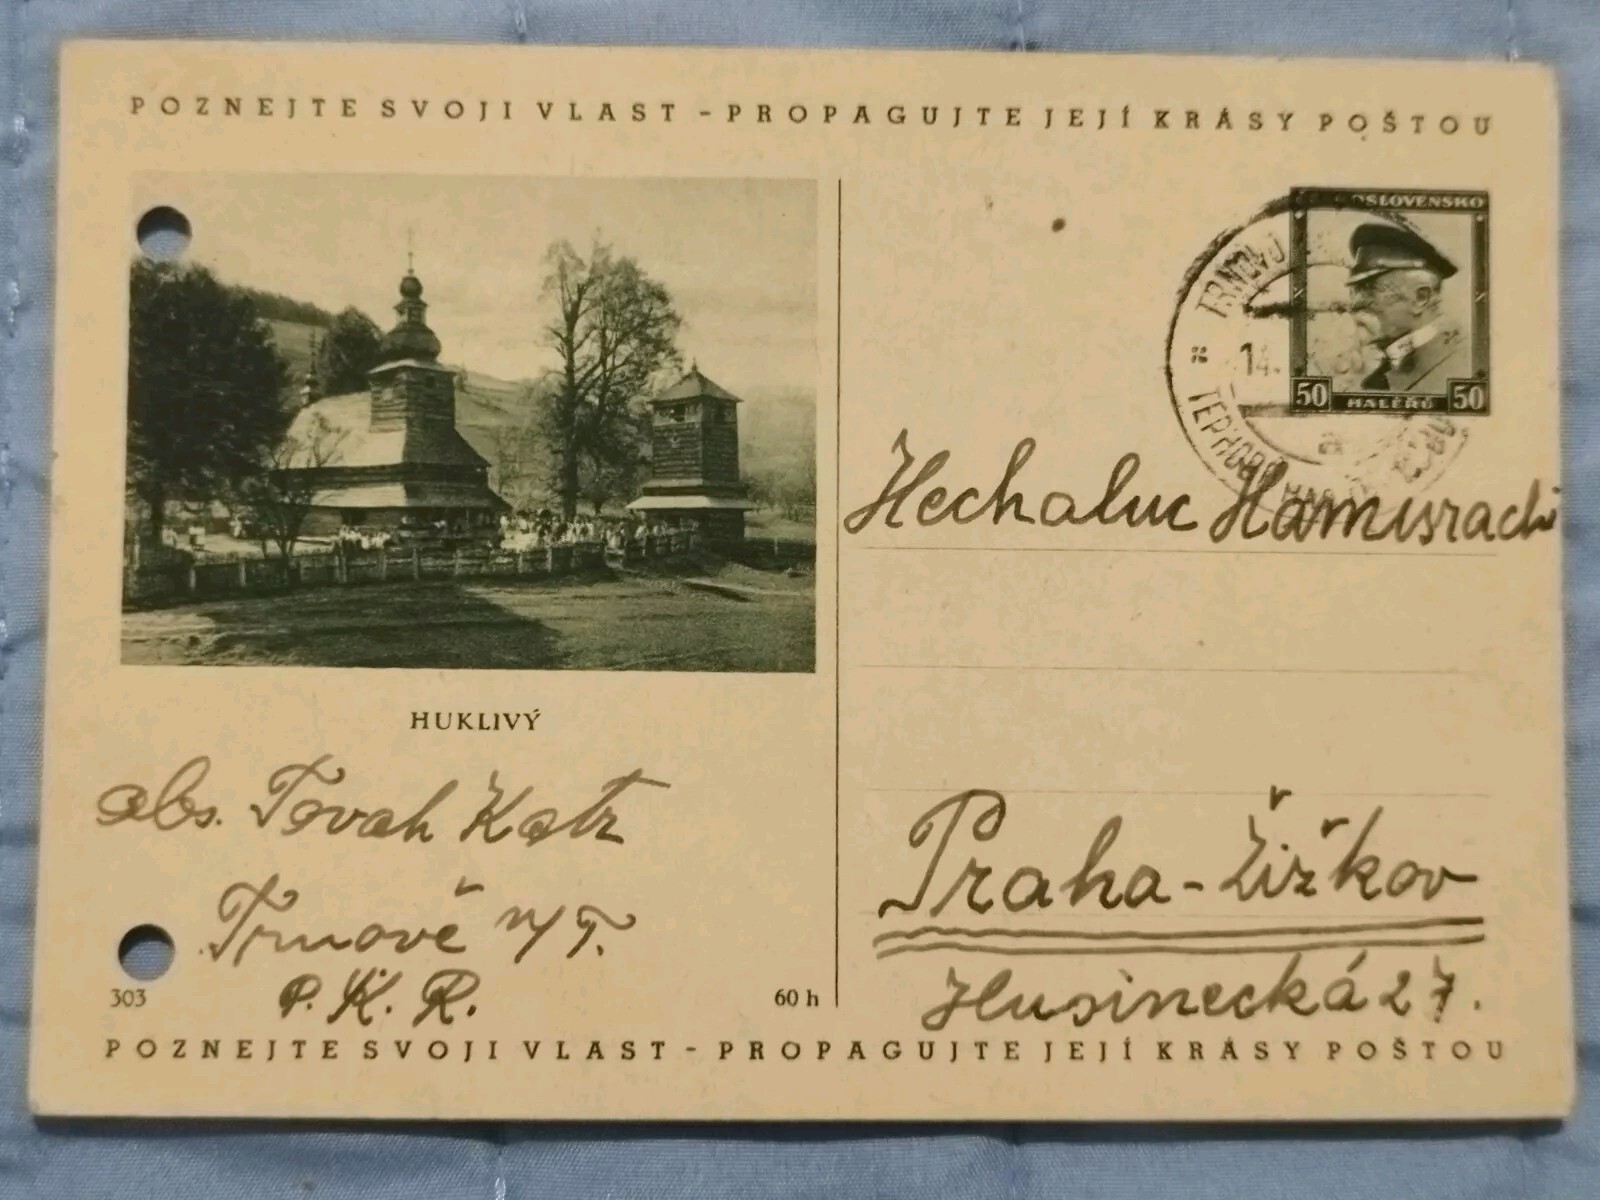 POZNEJTE SVOJI VLAST - PROPAGUJTE JEJÍ KRÁSY POŠTOU
HUKLIVÝ
abs. Tovah Katz
Trnové n/T.
P. K. R.
303
60 h
OSLOVENSKO
50 HALÉŘŮ 50
TRNOVO
14.
Hechaluc Hamisrachi
Praha-Žižkov
Husinecká 27.
POZNEJTE SVOJI VLAST - PROPAGUJTE JEJÍ KRÁSY POŠTOU